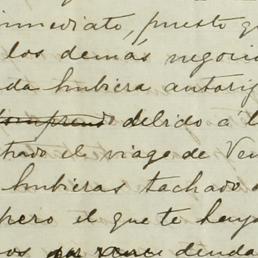 inmediato, puesto q
los demas negocio
da hubiera autoriz
comprendo debido a l
trado el viage de Ven
hubieras tachado
pero el que te haya
os deuda